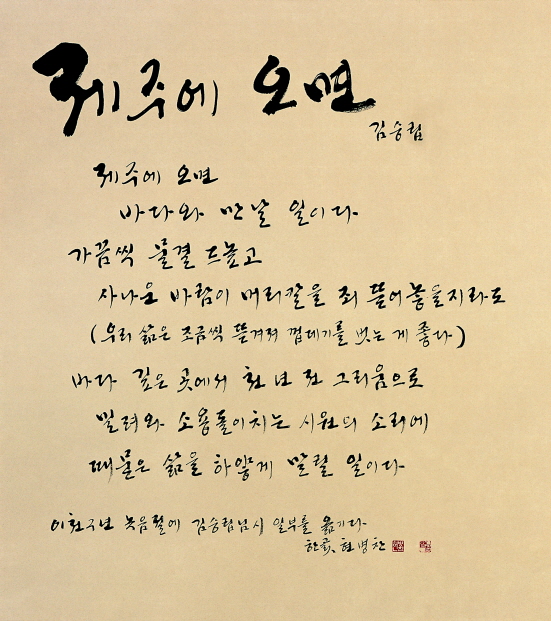 제주에 오면
김승립
제주에 오면
바다와 만날 일이다
가끔씩 물결 드높고
사나운 바람이 머리칼을 죄 뜯어놓을지라도
(우리 삶은 조금씩 뜯겨져 껍데기를 벗는 게 좋다)
바다 깊은 곳에서 천 년 전 그리움으로
밀려와 소용돌이치는 시원의 소리에
때묻은 삶을 하얗게 말릴 일이다
이천구년 녹음절에 김승립님 시 일부를 옮기다
한곬 현병찬